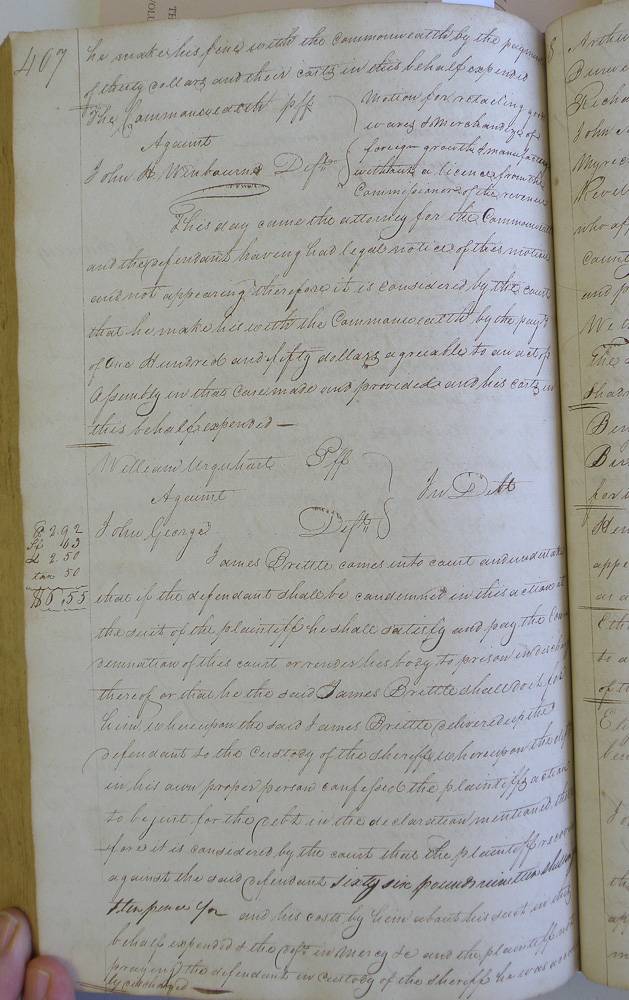 467
he makes his fine with the Commonwealth by the payment
of thirty dollars and their costs in this behalf expended
The Commonwealth Plff
Against
John H Winbourne Deft
Motion for retailing
wares & Merchandize of
foreign growth & manufactory
without a licence from the
Commissioner of the revenue
This day came the attorney for the Commonwealth
and the defendant having had legal notice of this motion
and not appearing therefore it is considered by the court
that he make his with the Commonwealth by the paymt
of One Hundred and fifty dollars agreable to an act of
Assembly in that Case made and provided and his costs in
this behalf expended —
William Urquhart Plff
Against
John George Deft
In Debt
2.92
63
2.50
tax 50
$6.55
James Brittle comes into court and undertakes
that if the defendant shall be condemned in this action at
the suit of the plaintiff he shall satisfy and pay the Con
demnation of this court or render his body to prison in discharge
thereof or that he the said James Brittle shall do it for
him whereupon the said James Brittle delivered up the
defendant to the custody of the sheriff whereupon the deft
in his own proper person confessed the plaintiffs action
to be just for the debt in the declaration mentioned there
fore it is considered by the court that the plaintiff recover
against the said defendant sixty six pounds nineteen shillings
& ten pence and his costs by him about his suit in this
behalf expended & the deft in Mercy &c and the plaintiff not
praying the defendant in custody of the sheriff he was
discharged